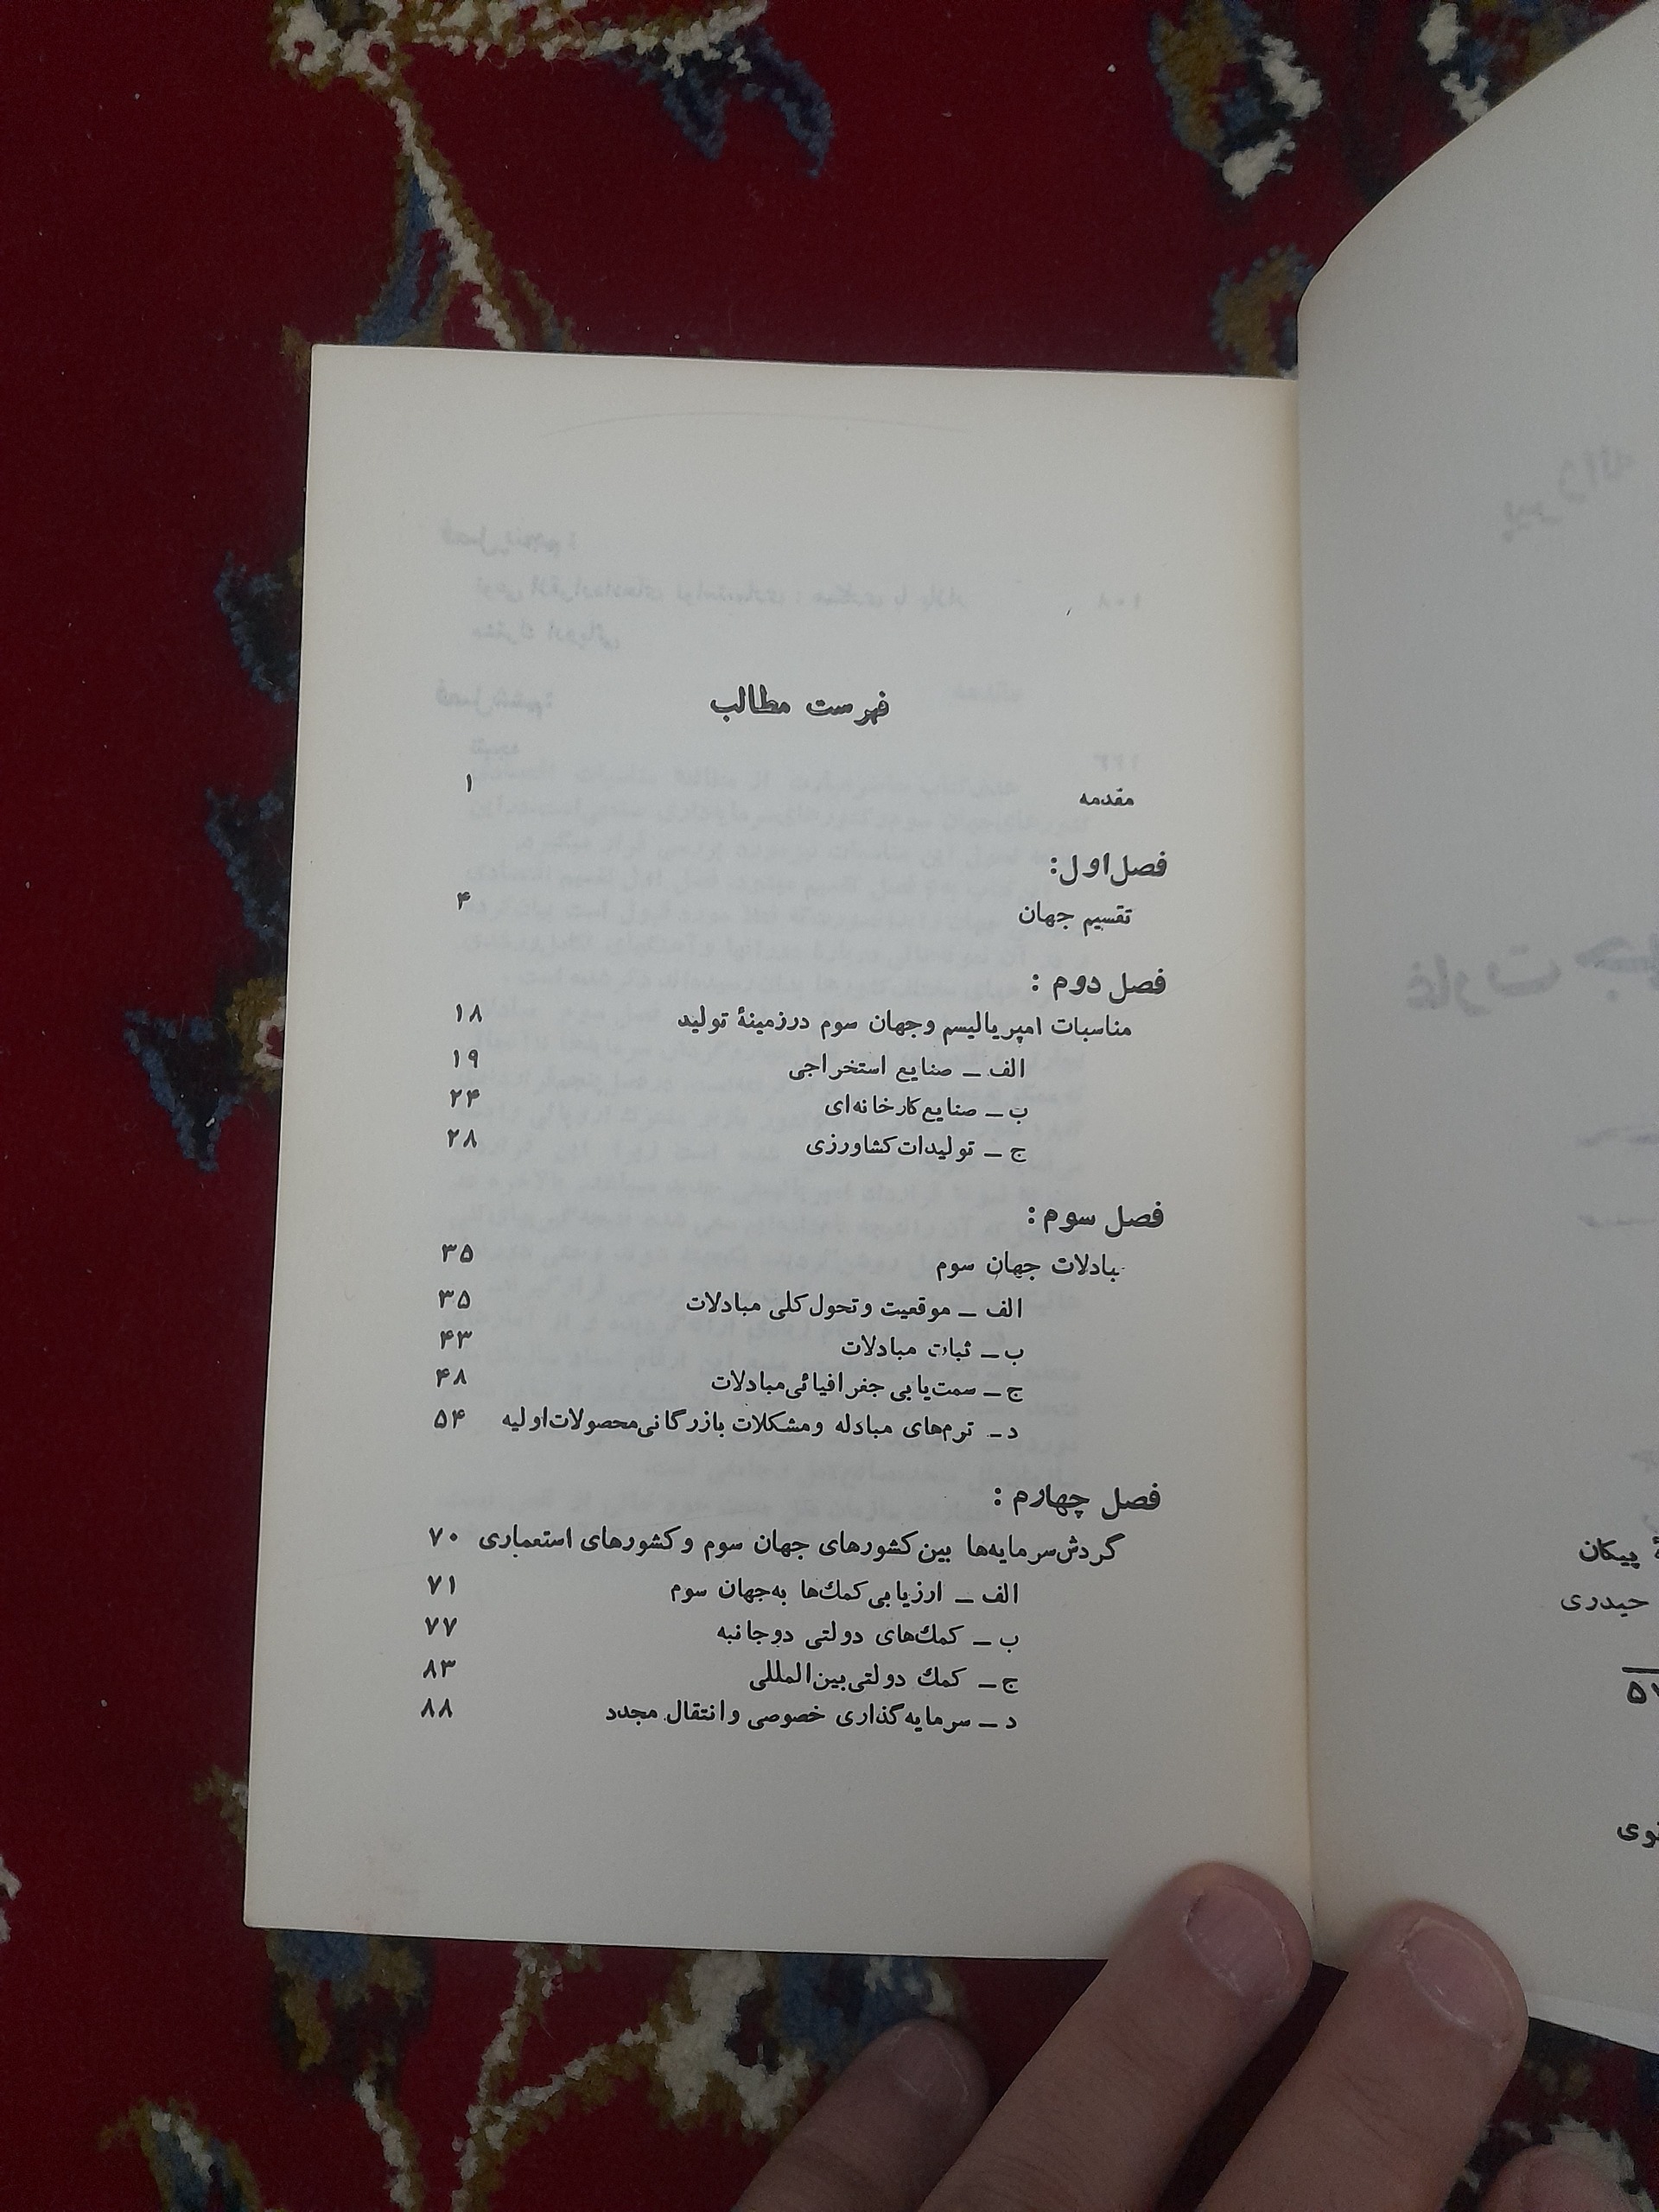 فهرست مطالب
مقدمه ۱
فصل اول:
تقسیم جهان ۴
فصل دوم :
مناسبات امپریالیسم وجهان سوم درزمینهٔ تولید ۱۸
الف ــ صنایع استخراجی ۱۹
ب ــ صنایع کارخانه‌ای ۲۴
ج ــ تولیدات کشاورزی ۲۸
فصل سوم :
مبادلات جهان سوم ۳۵
الف ــ موقعیت و تحول کلی مبادلات ۳۵
ب ــ ثبات مبادلات ۴۳
ج ــ سمت‌یابی جغرافیائی مبادلات ۴۸
د ــ ترم‌های مبادله ومشکلات بازرگانی محصولات اولیه ۵۴
فصل چهارم :
گردش سرمایه‌ها بین کشورهای جهان سوم و کشورهای استعماری ۷۰
الف ــ ارزیابی کمك‌ها به‌جهان سوم ۷۱
ب ــ کمك‌های دولتی دوجانبه ۷۷
ج ــ کمك دولتی بین‌المللی ۸۳
د ــ سرمایه‌گذاری خصوصی و انتقال مجدد ۸۸
پیکان
حیدری